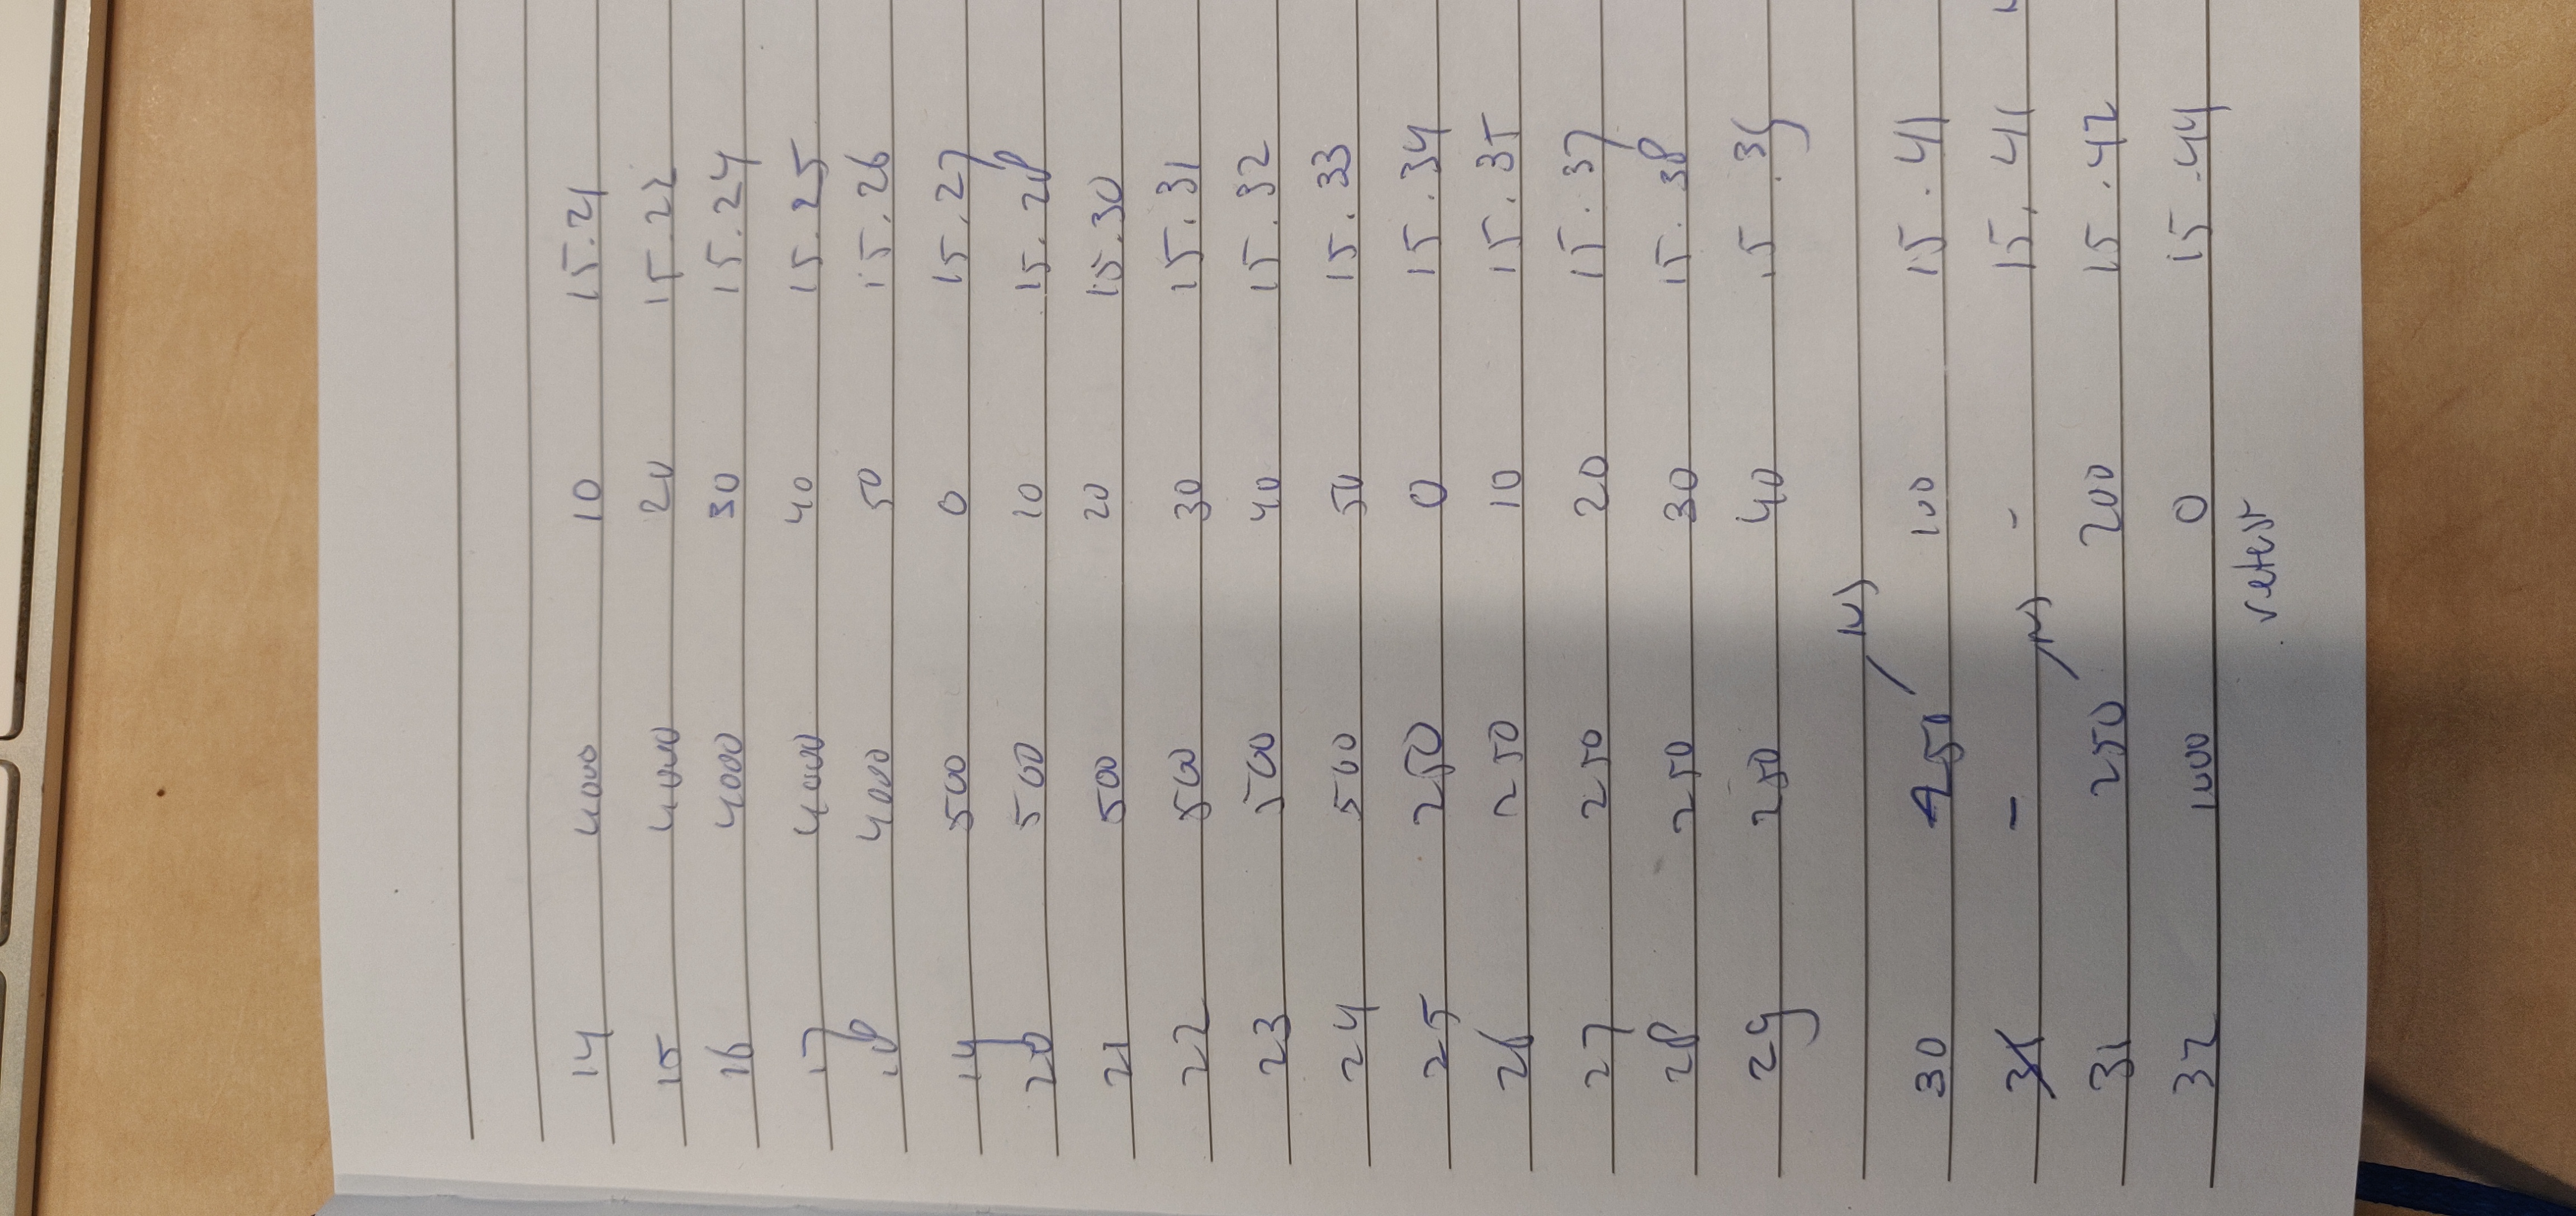 14 4000 10 15.21
15 4000 20 15.22
16 4000 30 15.24
17 4000 40 15.25
18 4000 50 15.26
19 500 0 15.27
20 500 10 15.28
21 500 20 15.30
22 500 30 15.31
23 500 40 15.32
24 500 50 15.33
25 250 0 15.34
26 250 10 15.35
27 250 20 15.37
28 250 30 15.38
29 250 40 15.39
30 250 100 15.41
31 - - 15.41
31 250 200 15.42
32 1000 0 15.44
retest